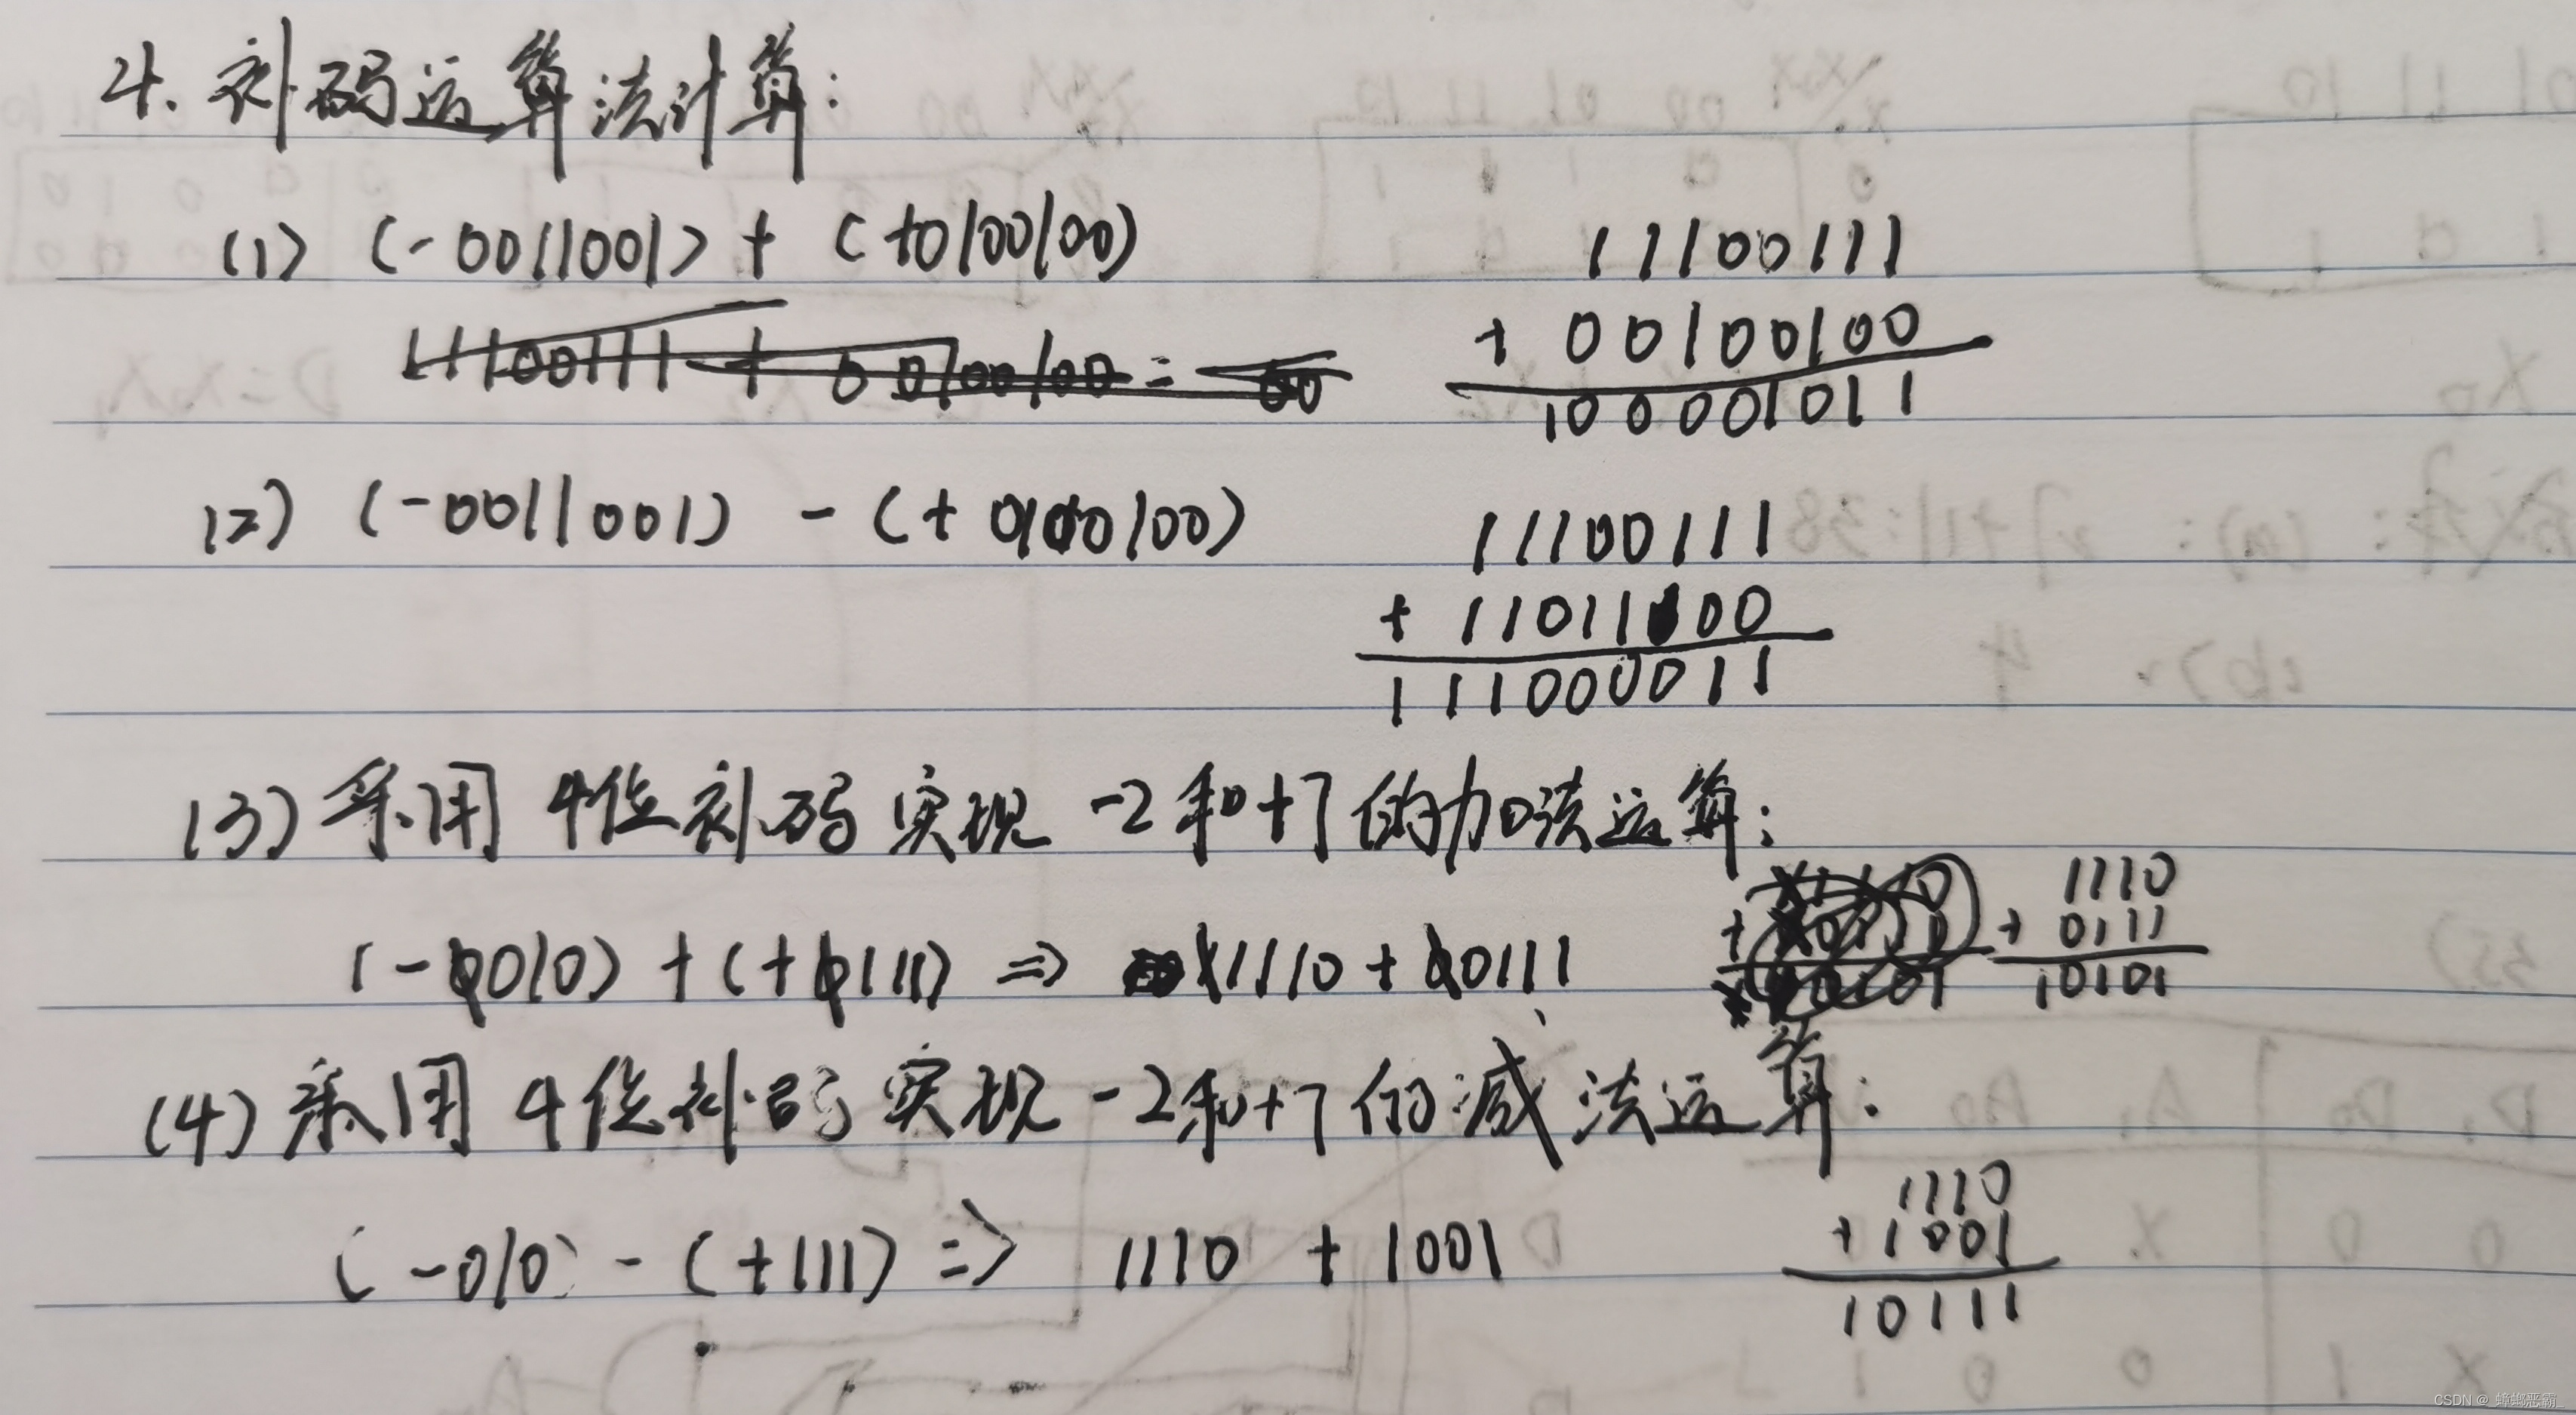 4. 补码运算法计算:
(1) (-0011001) + (+0100100)
11100111
+ 00100100
100001011
11100111 + 00100100 =
(2) (-0011001) - (+0100100)
11100111
+ 11011100
111000011
(3) 采用 4位补码 实现 -2和+7的加法运算:
(-0010) + (+0111) => 11110 + 00111
1110
+ 0111
10101
(4) 采用 4位补码 实现 -2和+7的减法运算:
(-010) - (+111) => 1110 + 1001
1110
+ 1001
10111
CSDN @_蟑螂恶霸_